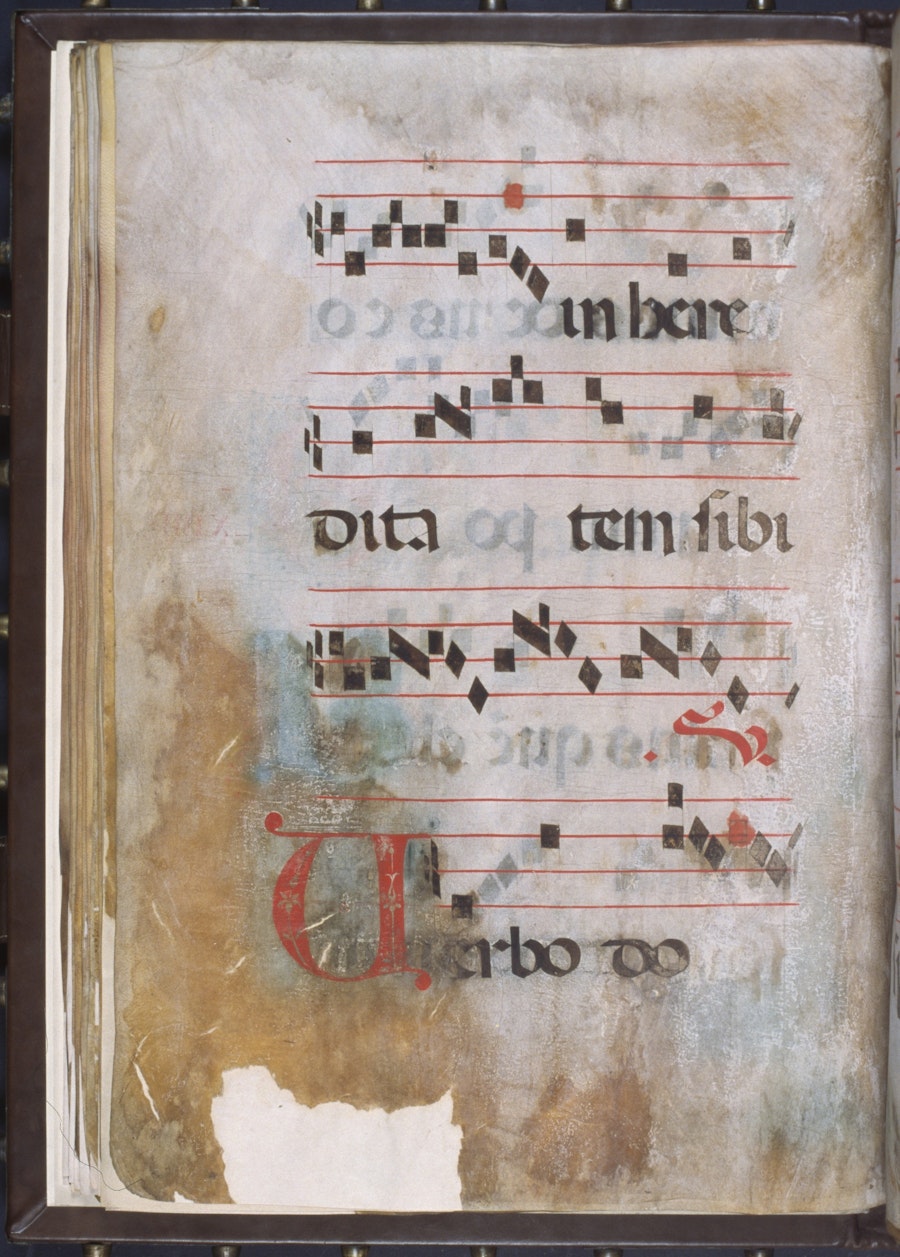 in here
dita tem sibi
.℣.
Uerbo do